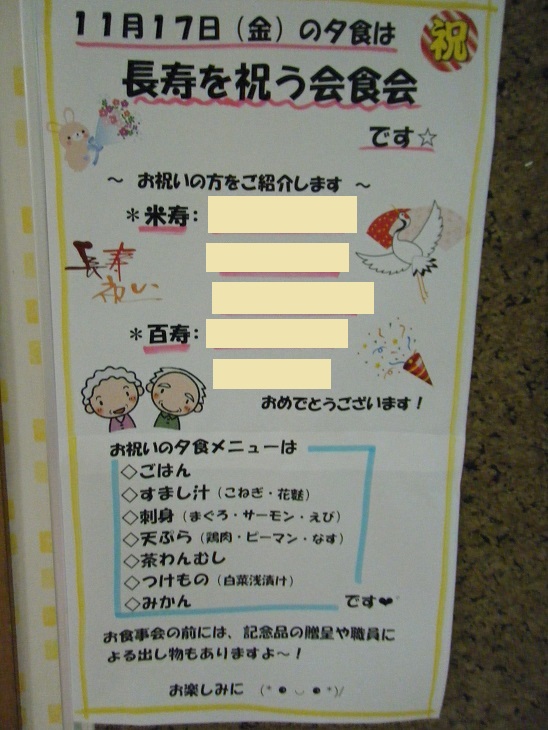 11月17日（金）の夕食は
祝
長寿を祝う会食会
です☆
～ お祝いの方をご紹介します ～
＊米寿：
長寿
祝い
＊百寿：
おめでとうございます！
お祝いの夕食メニューは
◇ごはん
◇すまし汁（こねぎ・花麩）
◇刺身（まぐろ・サーモン・えび）
◇天ぷら（鶏肉・ピーマン・なす）
◇茶わんむし
◇つけもの（白菜浅漬け）
◇みかん
です❤
お食事会の前には、記念品の贈呈や職員に
よる出し物もありますよ～！
お楽しみに (*●◡●*)/